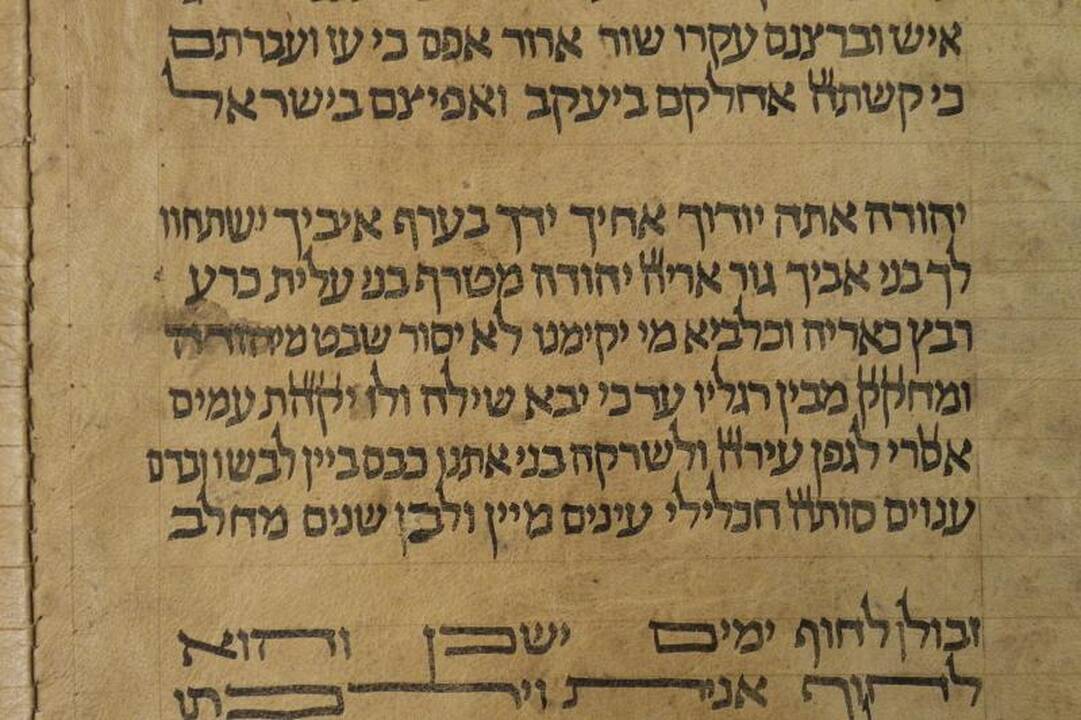 איש וברצנם עקרו שור ארור אפם כי עז ועברתם
כי קשתה אחלקם ביעקב ואפיצם בישראל
יהודה אתה יודוך אחיך ידך בערף איביך ישתחוו
לך בני אביך גור אריה יהודה מטרף בני עלית כרע
רבץ כאריה וכלביא מי יקימנו לא יסור שבט מיהודה
ומחקק מבין רגליו עד כי יבא שילה ולו יקהת עמים
אסרי לגפן עירה ולשרקה בני אתנו כבס ביין לבשו ובדם
ענבים סותה חכלילי עינים מיין ולבן שנים מחלב
זבולן לחוף ימים ישכן והוא
לחוף אנית וירכתו